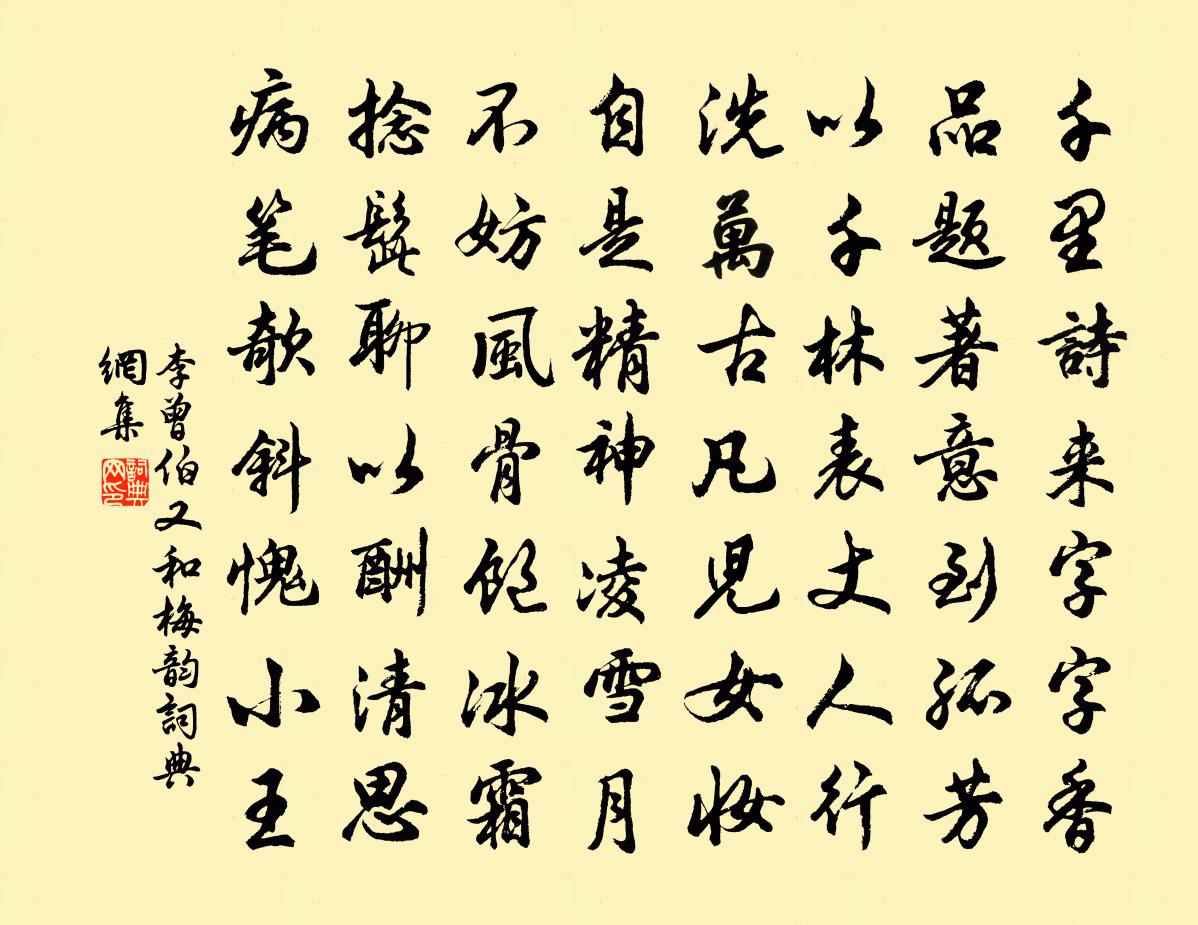 千里詩来字字香
品题著意到孤芳
以千林表丈人行
洗萬古凡児女妝
自是精神凌雪月
不妨風骨飽冰霜
捻髭聊以酬清思
病笔欹斜愧小王
李曾伯又和梅韵詞典
網集
詞典网印